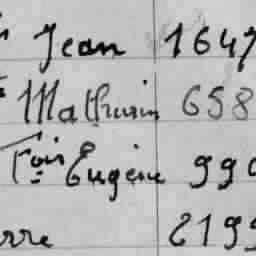 Jean 1647
Mathurin 658
Fois Eugène 990
erre 2199